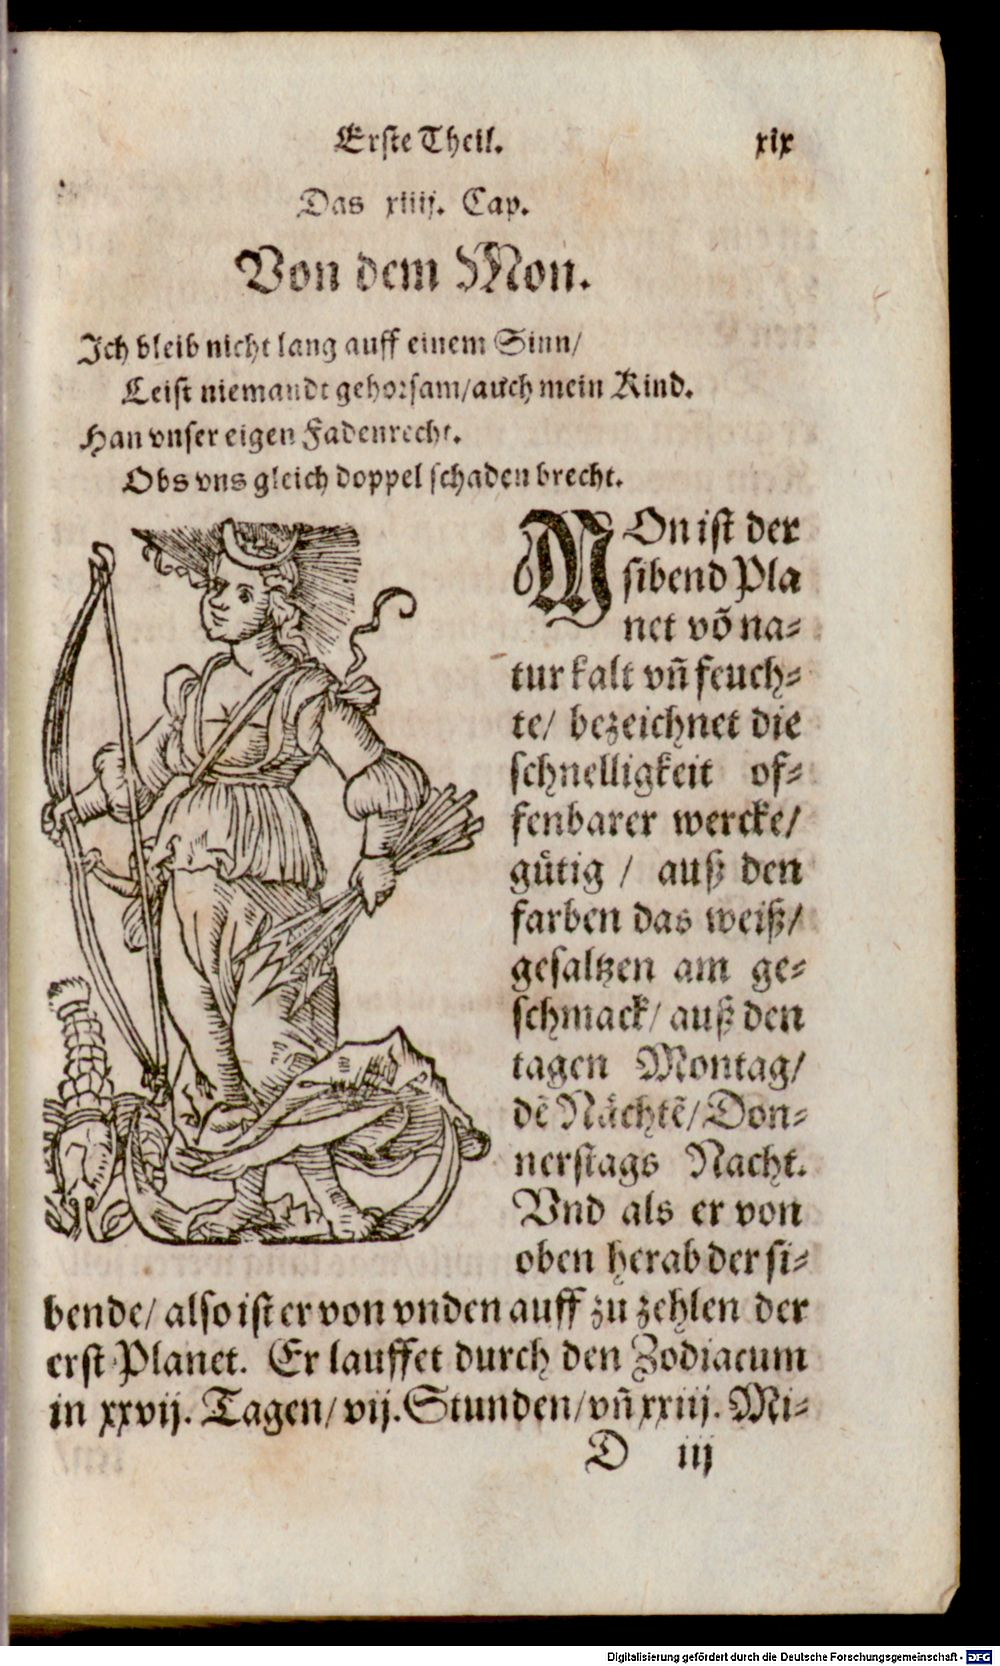 Erste Theil. xix
Das xiiij. Cap.
Von dem Mon.
Ich bleib nicht lang auff einem Sinn/
Leist niemandt gehorsam/auch mein Kind.
Han vnser eigen Fadenrecht.
Obs vns gleich doppel schaden brecht.
MOn ist der
sibend Pla
net võ na⸗
tur kalt vñ feuch⸗
te/ bezeichnet die
schnelligkeit of⸗
fenbarer wercke/
gütig / auß den
farben das weiß/
gesaltzen am ge⸗
schmack/ auß den
tagen Montag/
dẽ Nächtẽ/ Don⸗
nerstags Nacht.
Vnd als er von
oben herab der si⸗
bende/ also ist er von vnden auff zu zehlen der
erst Planet. Er lauffet durch den Zodiacum
in xxvij. Tagen/ vij. Stunden/ vñ xxiij. Mi⸗
D iij
Digitalisierung gefördert durch die Deutsche Forschungsgemeinschaft - DFG